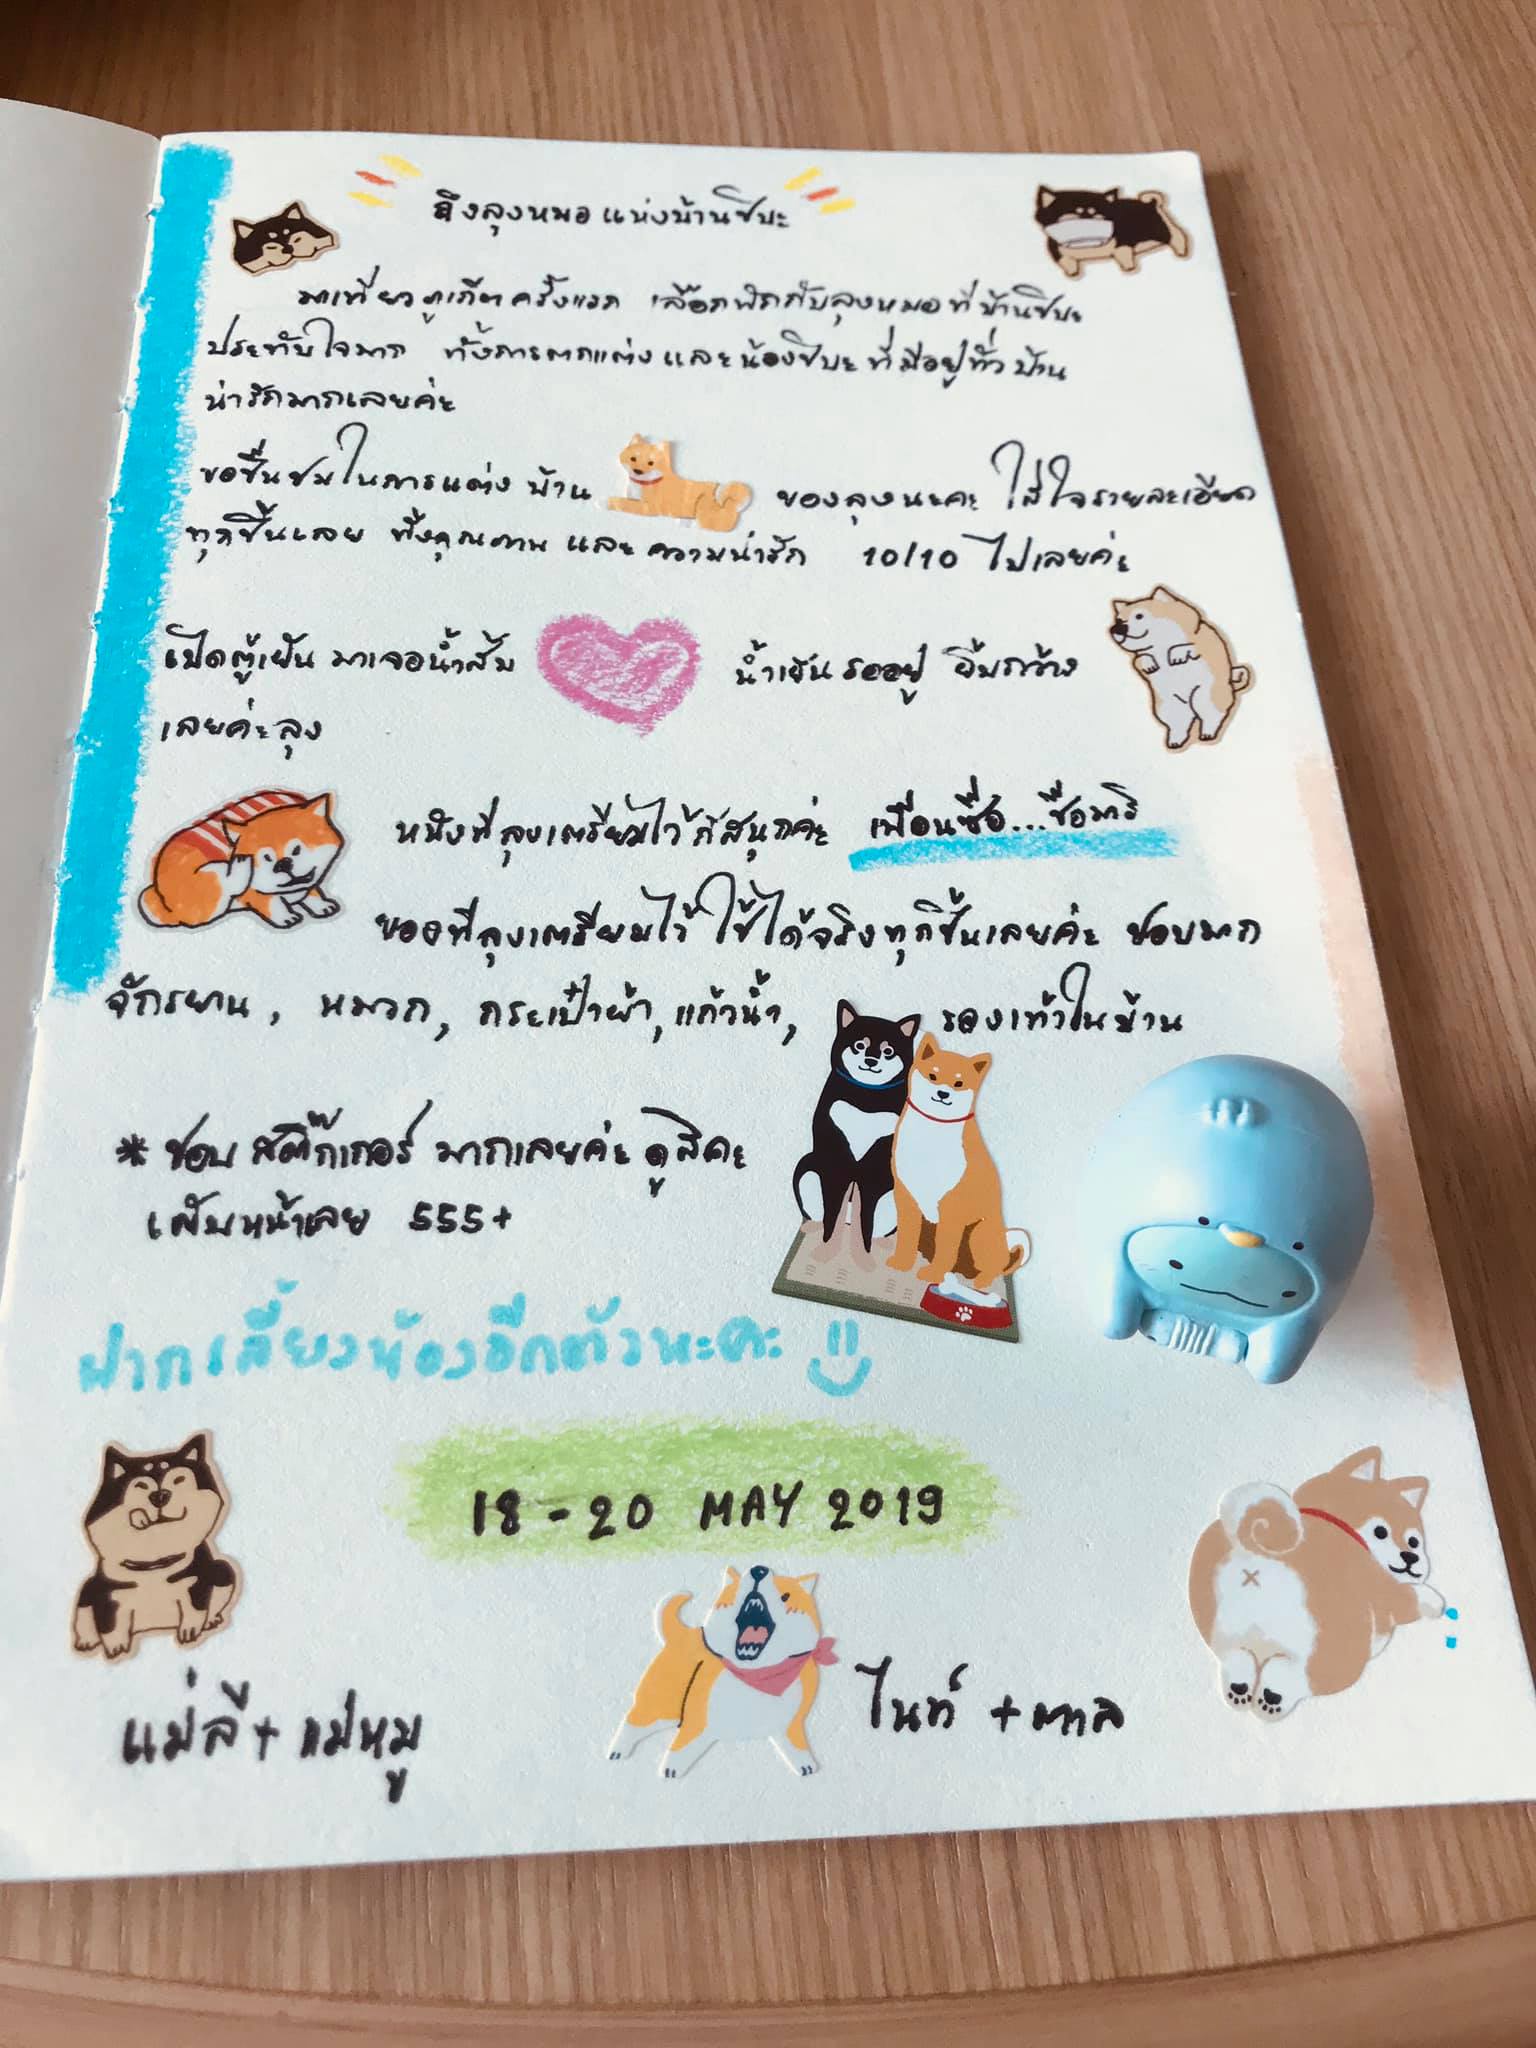 ถึงลุงหมอแห่งบ้านชิบะ
มาเที่ยวภูเก็ตครั้งแรก เลือกพักกับลุงหมอที่บ้านชิบะ
ประทับใจมาก ทั้งการตกแต่งและน้องชิบะที่มีอยู่ทั่วบ้าน
น่ารักมากเลยค่ะ
ขอชื่นชมในการแต่งบ้าน ของลุงนะคะ ใส่ใจรายละเอียด
ทุกชิ้นเลย ทั้งคุณภาพ และความน่ารัก 10/10 ไปเลยค่ะ
เปิดตู้เย็นมาเจอน้ำส้ม น้ำเย็นรออยู่ ยิ้มกว้าง
เลยค่ะลุง
หนังที่ลุงเตรียมไว้ก็สนุกค่ะ เพื่อนซื่อ...ชื่อมาริ
ของที่ลุงเตรียมไว้ ใช้ได้จริงทุกชิ้นเลยค่ะ ชอบมาก
จักรยาน, หมวก, กระเป๋าผ้า, แก้วน้ำ, รองเท้าในบ้าน
* ชอบ สติ๊กเกอร์ มากเลยค่ะ ดูสิคะ
เต็มหน้าเลย 555+
ฝากเลี้ยงน้องอีกตัวนะคะ
18-20 MAY 2019
แม่ลี + แม่หมู ไนท์ + ตาล